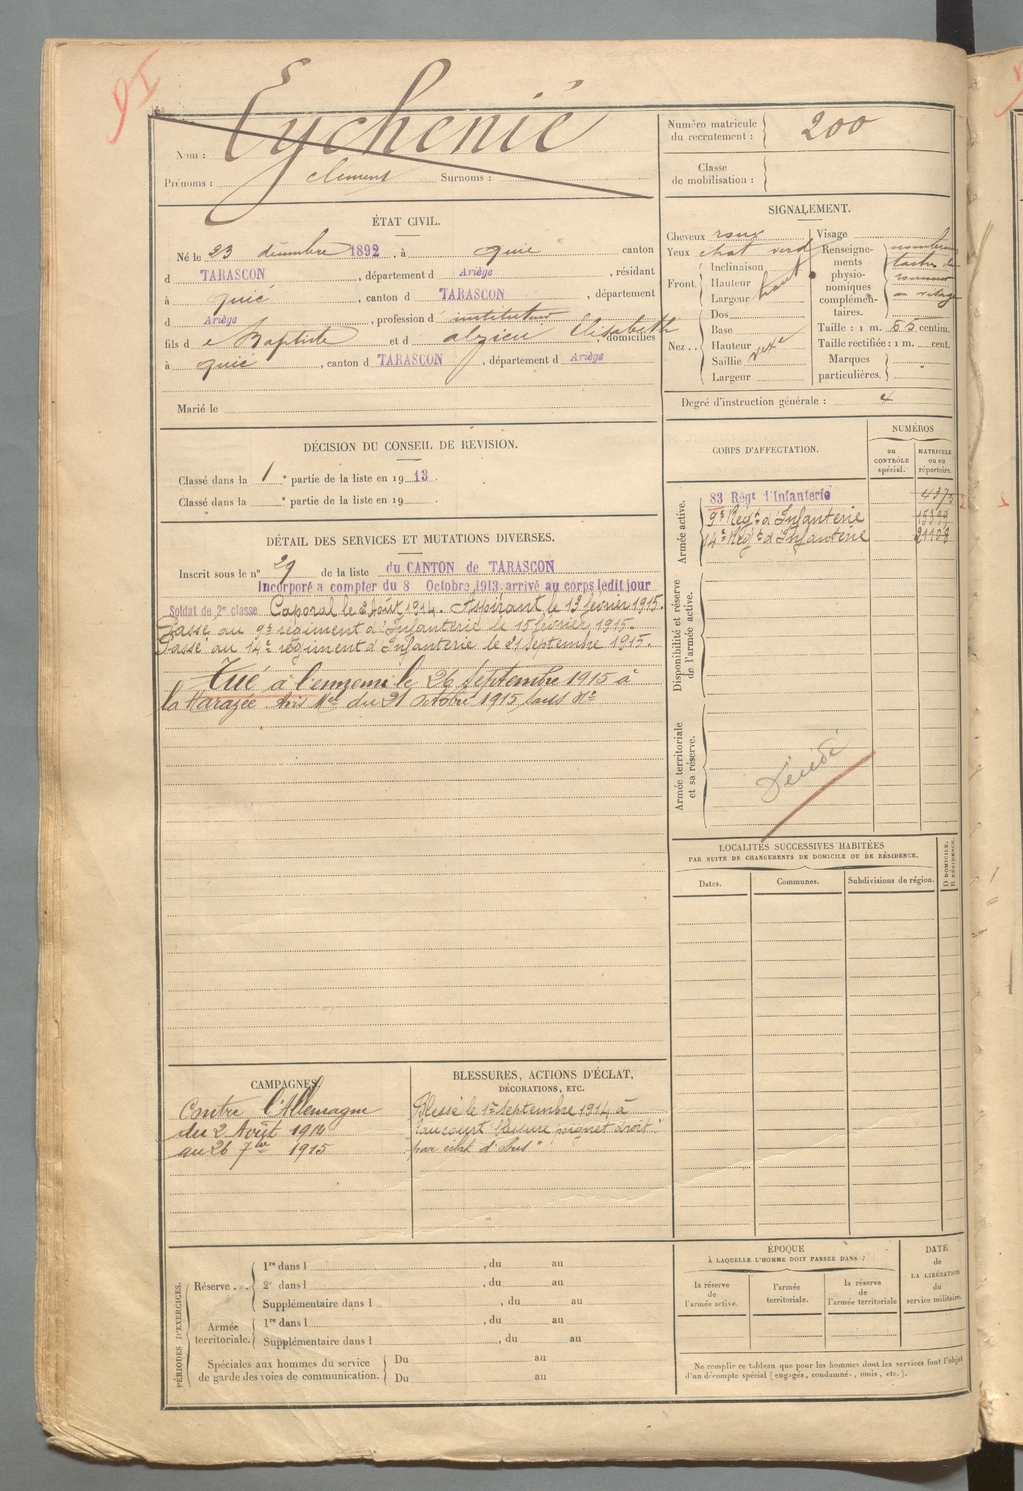 Eychenié
Nom :
Prénoms : Clément Surnoms :
Numéro matricule du recrutement : 200
Classe de mobilisation :
ÉTAT CIVIL.
Né le 23 décembre 1892, à Quié canton
d TARASCON, département d Ariège, résidant
à Quié, canton d TARASCON, département
d Ariège, profession d instituteur
fils d e Baptiste et d Alzieu Elisabeth, domiciliés
à Quié, canton d TARASCON, département d Ariège
Marié le
SIGNALEMENT.
Cheveux roux
Yeux chat verd
Front. Inclinaison
Hauteur haut
Largeur
Nez. Dos
Base
Hauteur
Saillie vexe
Largeur
Visage
Renseignements physionomiques complémentaires. nombreuses taches de rousseur au visage
Taille : 1 m. 65 centim.
Taille rectifiée : 1 m. cent.
Marques particulières.
Degré d'instruction générale : 4
DÉCISION DU CONSEIL DE REVISION.
Classé dans la 1e partie de la liste en 1913.
Classé dans la e partie de la liste en 19
DÉTAIL DES SERVICES ET MUTATIONS DIVERSES.
Inscrit sous le n° 29 de la liste du CANTON de TARASCON
Incorporé à compter du 8 Octobre 1913, arrivé au corps ledit jour
Soldat de 2e classe Caporal le 2 Août 1914. Aspirant le 13 février 1915.
Passé au 9e régiment d'Infanterie le 15 février 1915.
Passé au 14e régiment d'Infanterie le 21 septembre 1915.
Tué à l'ennemi le 26 Septembre 1915 à
la Harazée Avis Mel du 21 octobre 1915 sans No
CORPS D'AFFECTATION.
NUMÉROS
au CONTRÔLE spécial.
MATRICULE ou au répertoire.
Armée active.
83 Régt d'Infanterie
9e Régt d'Infanterie
14e Régt d'Infanterie
Disponibilité et réserve de l'armée active.
Armée territoriale et sa réserve.
Décédé
LOCALITÉS SUCCESSIVES HABITÉES
PAR SUITE DE CHANGEMENTS DE DOMICILE OU DE RÉSIDENCE.
Dates.
Communes.
Subdivisions de région.
D DOMICILE.
R RÉSIDENCE.
CAMPAGNES.
Contre l'Allemagne
du 2 Août 1914
au 26 7bre 1915
BLESSURES, ACTIONS D'ÉCLAT,
DÉCORATIONS, ETC.
Blessé le 1er septembre 1914 à
poignet droit
par éclat d'obus"
PÉRIODES D'EXERCICES.
Réserve
1re dans l , du au
2e dans l , du au
Supplémentaire dans l , du au
Armée territoriale.
1re dans l , du au
Supplémentaire dans l , du au
Spéciales aux hommes du service de garde des voies de communication.
Du au
Du au
ÉPOQUE
À LAQUELLE L'HOMME DOIT PASSER DANS :
la réserve de l'armée active.
l'armée territoriale.
la réserve de l'armée territoriale
DATE de LA LIBÉRATION du service militaire.
Ne remplir ce tableau que pour les hommes dont les services font l'objet
d'un décompte spécial (engagés, condamnés, omis, etc.).